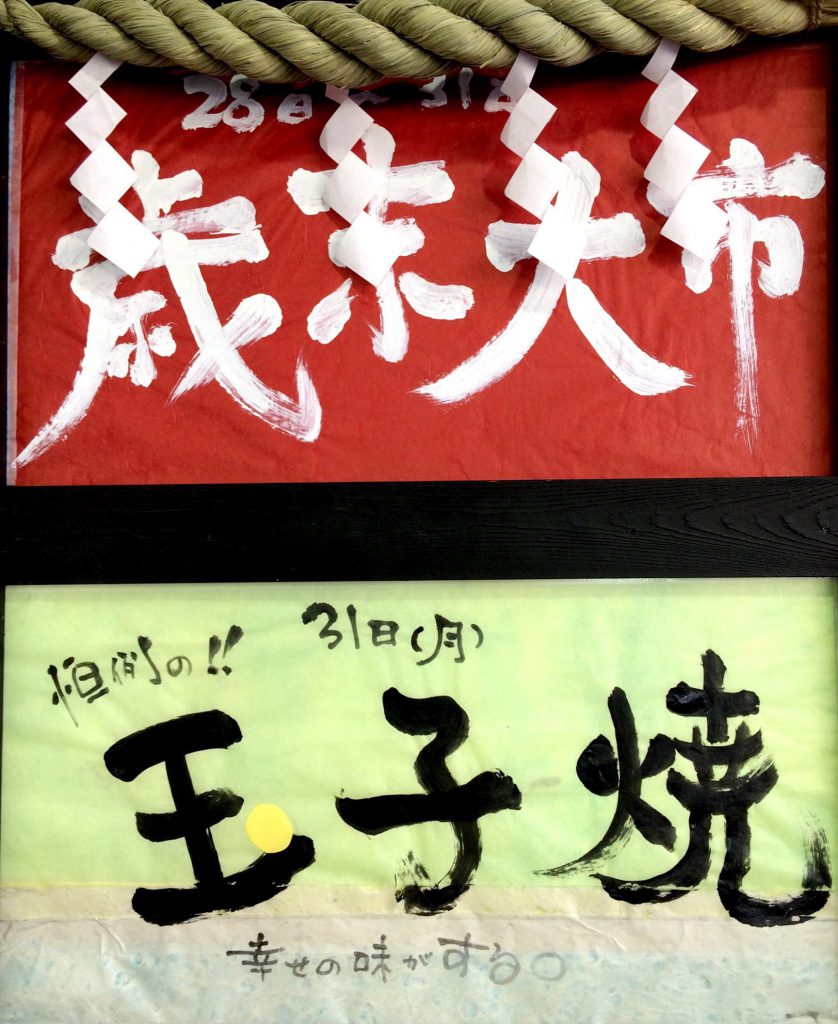 28日〜31日
歳末大市
31日(月)
恒例の!!
玉子焼
幸せの味がする○